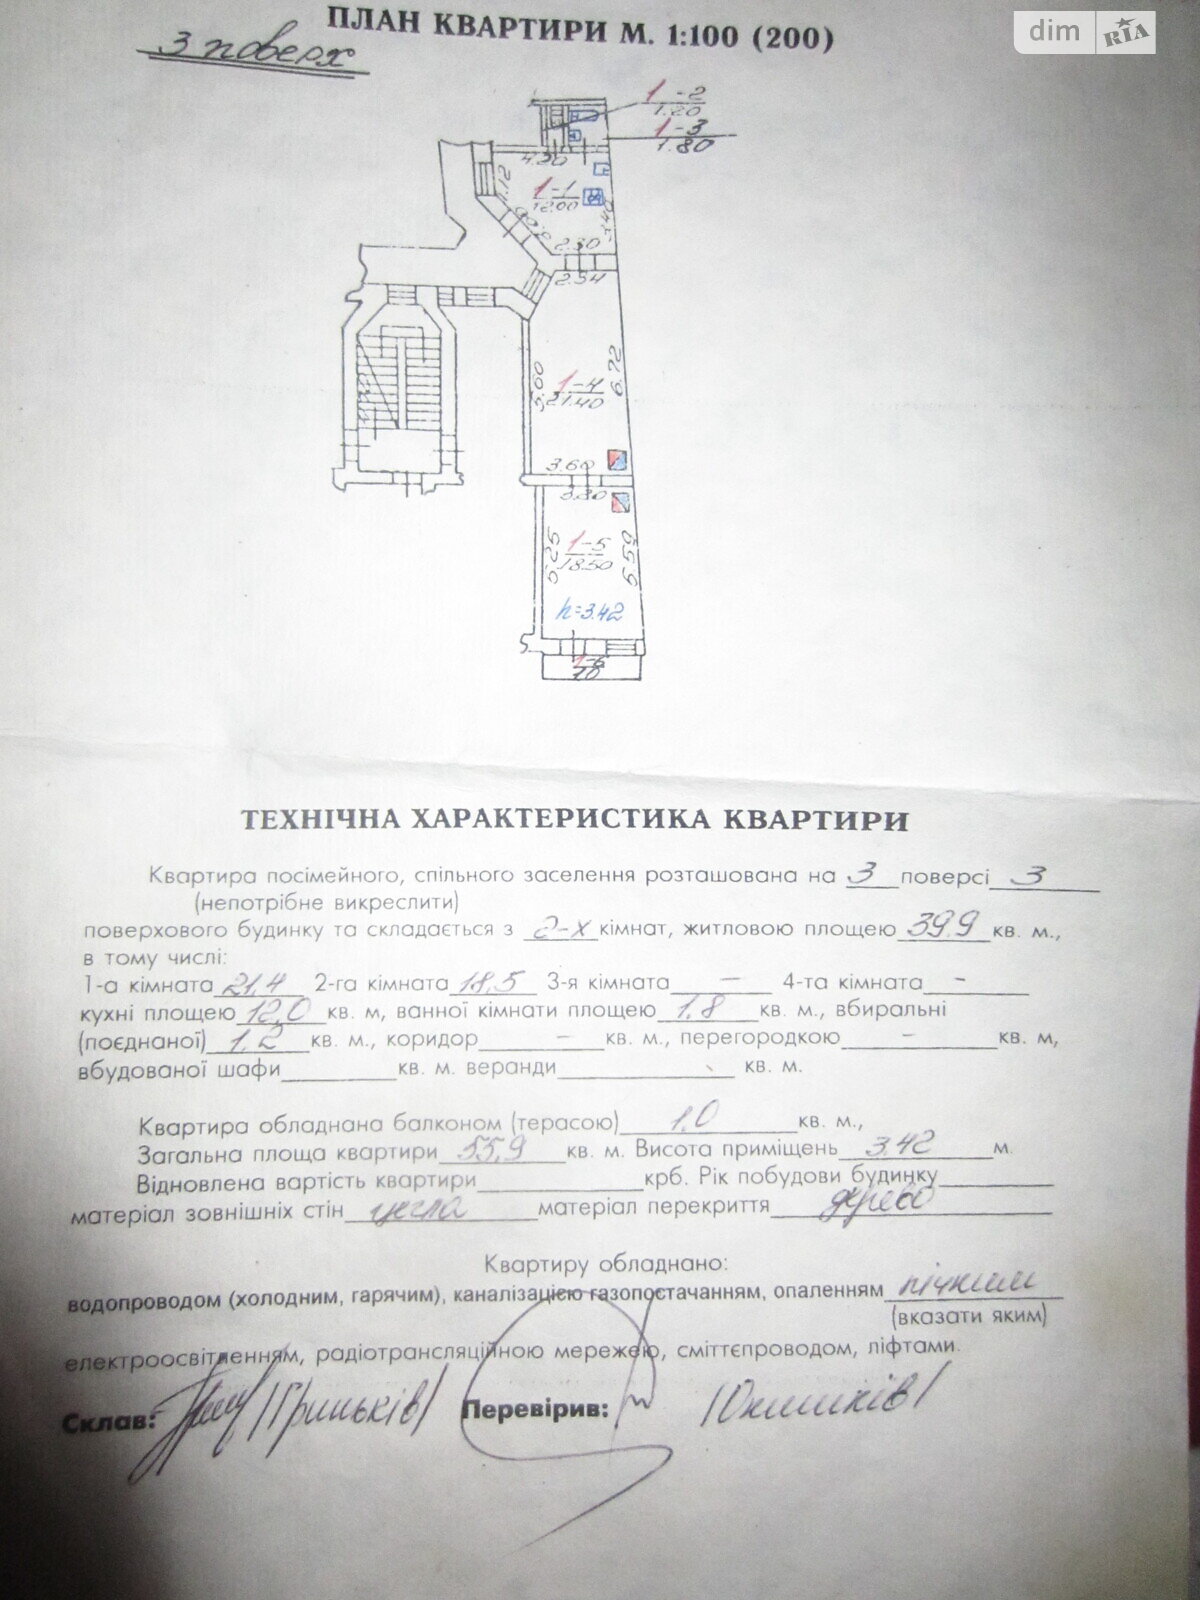 ПЛАН КВАРТИРИ М. 1:100 (200)
3 поверх
dim RIA
1-2
1.20
1-3
1.80
4.20
1.12
1-1
12.00
3.40
2.30
2.54
5.60
1-4
21.40
6.72
3.60
3.80
5.25
1-5
18.50
5.59
h=3.42
1-6
1.0
ТЕХНІЧНА ХАРАКТЕРИСТИКА КВАРТИРИ
Квартира посімейного, спільного заселення розташована на 3 поверсі 3
(непотрібне викреслити)
поверхового будинку та складається з 2-х кімнат, житловою площею 39.9 кв. м.,
в тому числі:
1-а кімната 21,4 2-га кімната 18,5 3-я кімната – 4-та кімната –
кухні площею 12,0 кв. м, ванної кімнати площею 1,8 кв. м., вбиральні
(поєднаної) 1,2 кв. м., коридор – кв. м., перегородкою – кв. м,
вбудованої шафи кв. м. веранди кв. м.
Квартира обладнана балконом (терасою) 1,0 кв. м.,
Загальна площа квартири 55,9 кв. м. Висота приміщень 3.42 м.
Відновлена вартість квартири крб. Рік побудови будинку
матеріал зовнішніх стін цегла матеріал перекриття дерево
Квартиру обладнано:
водопроводом (холодним, гарячим), каналізацією газопостачанням, опаленням пічним
(вказати яким)
електроосвітленням, радіотрансляційною мережею, сміттєпроводом, ліфтами.
Склав: /Гриньків/ Перевірив: